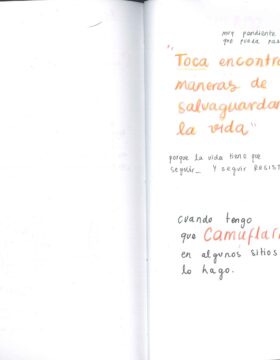 muy pendiente
que pueda
"Toca encontra
maneras de
salvaguardar
la vida"
porque la vida tiene que
seguir_ Y seguir REGIST
cuando tengo
que camuflar
en algunos sitios
lo hago.